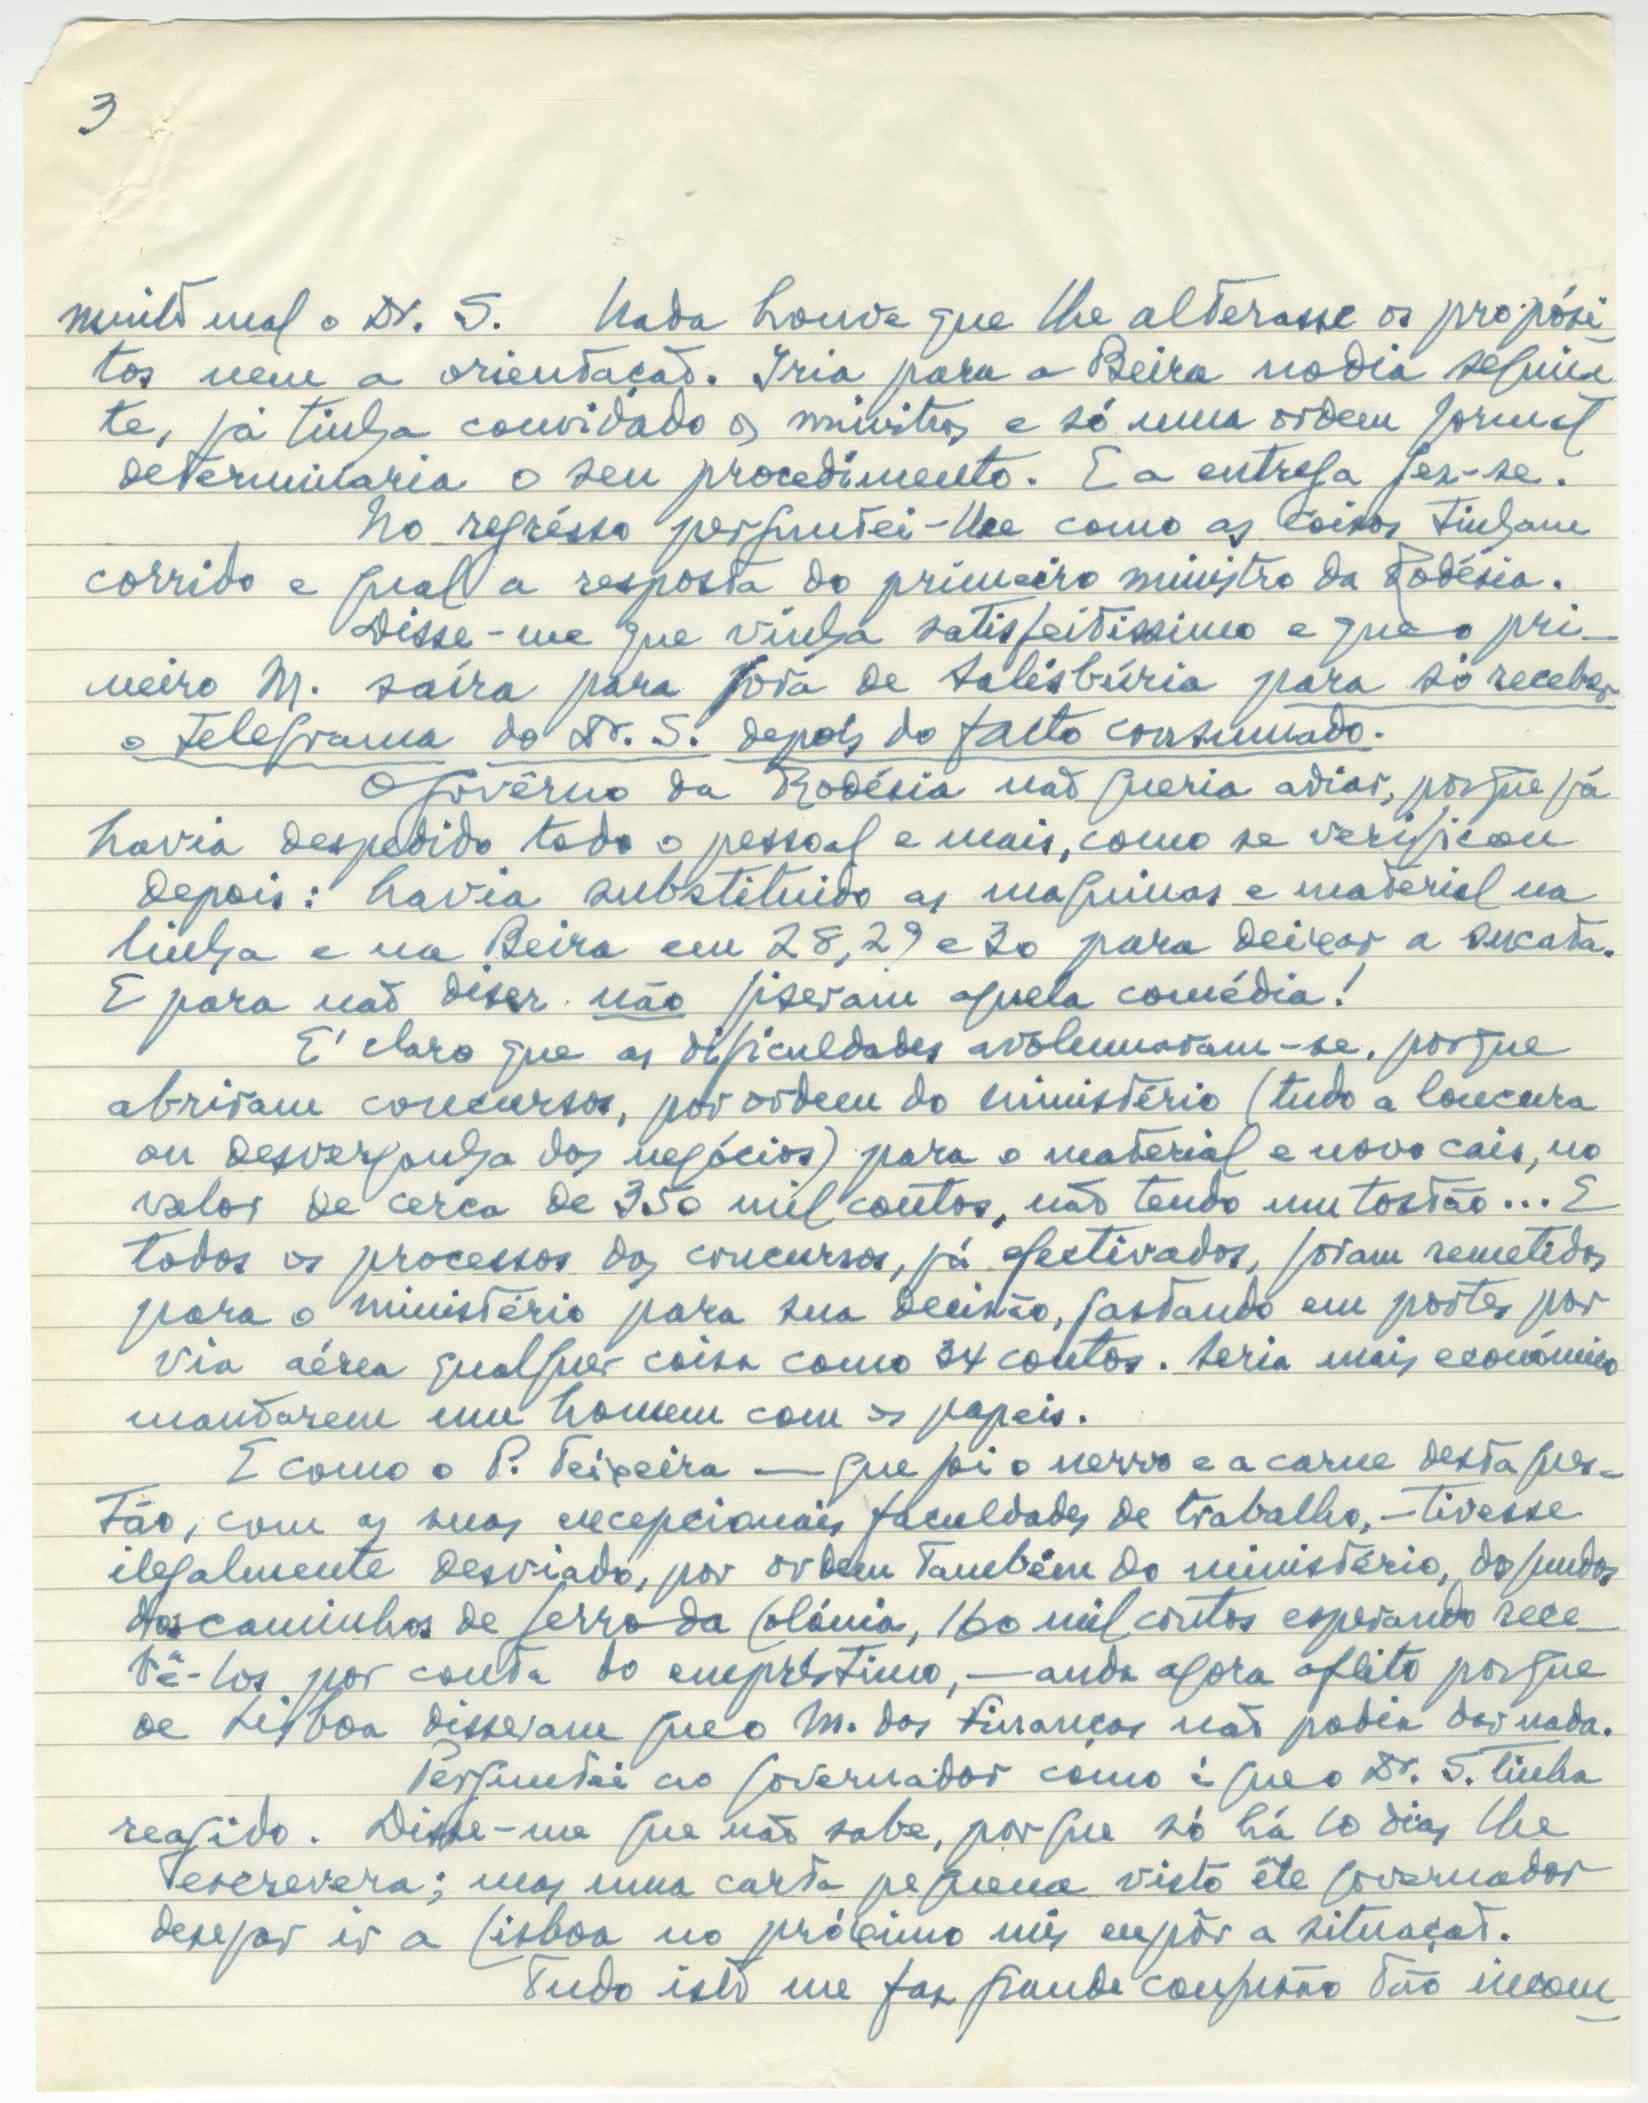 3
muito mal o Dr. S. Nada houve que lhe alterasse os propósi-
tos nem a orientação. Iria para a Beira no dia seguin-
te, já tinha convidado os ministros e só uma ordem formal
determinaria o seu procedimento. E a entrega fez-se.
No regrésso perguntei-lhe como as coisas tinham
corrido e qual a resposta do primeiro ministro da Rodésia.
Disse-me que vinha satisfeitissimo e que o pri-
meiro M. saíra para fora de Salisbúria para só receber
o telegrama do Dr. S. depois do facto consumado.
O govêrno da Rodésia não queria adiar, porque já
havia despedido todo o pessoal e mais, como se verificou
depois: havia substituido as maquinas e material na
linha e na Beira em 28, 29 e 30 para deixar a sucata.
E para não dizer não fizeram aquela comédia!
E' claro que as dificuldades avolumaram-se, porque
abriram concursos, por ordem do ministério (tudo a loucura
ou desvergonha dos negócios) para o material e novo cais, no
valor de cerca de 350 mil contos, não tendo um tostão... E
todos os processos dos concursos, já efectivados, foram remetidos
para o ministério para sua decisão, gastando em portes por
via aérea qualquer coisa como 34 contos. Seria mais económico
mandarem um homem com os papeis.
E como o P. Teixeira — que foi o nervo e a carne desta ques-
tão, com as suas excepcionais faculdades de trabalho, — tivesse
ilegalmente desviado, por ordem também do ministério, dos fundos
dos caminhos de ferro da Colónia, 160 mil contos esperando rece-
bê-los por conta do empréstimo, — anda agora aflito porque
de Lisboa disseram que o M. das Finanças não podia dar nada.
Perguntei ao governador cómo é que o Dr. S. tinha
reagido. Disse-me que não sabe, porque só há 10 dias lhe
escrevera; mas uma carta pequena visto êle governador
desejar ir a Lisboa no próximo mês expôr a situação.
Tudo isto me faz grande confusão tão incom-